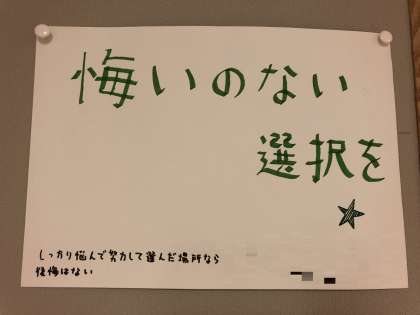 悔いのない
選択を
しっかり悩んで努力して選んだ場所なら
後悔はない